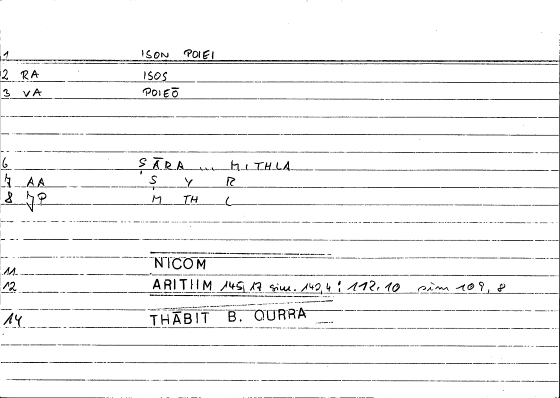 1 ISON POIEI
2 RA ISOS
3 VA POIEŌ
6 ṢĀRA ... MITHLA
7 AA Ṣ Y R
8 P M TH L
11 NICOM
12 ARITIIM 145,17 sim. 140,4 : 112.10 sim 109,8
14 THĀBIT B. QURRA